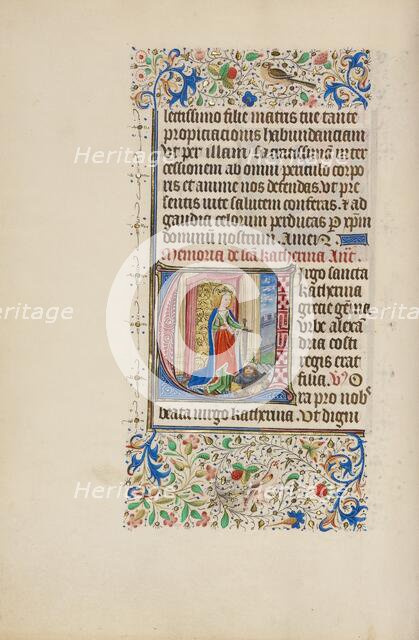 lectissimo filie matris tue tante
propiciacionis habundanciam
Vt per illam sacratissimā inter
cessionem ab omni periculo corpo
ris et anime nos defendas. Vt pre
sentis uite salutem conferas. & ad
gaudia celorum perducas p xpm̄
dominū nostrum. Amen
Memoria de sca katherina Añ.
Virgo sancta
katherina
grecie gēma
urbe alexa
dria costi
regis erat
filia. V̄. O
ra pro nob̄
beata uirgo katherina. Vt digni
Heritage
Heritage
Heritage
Heritage
Heritage
Heritage